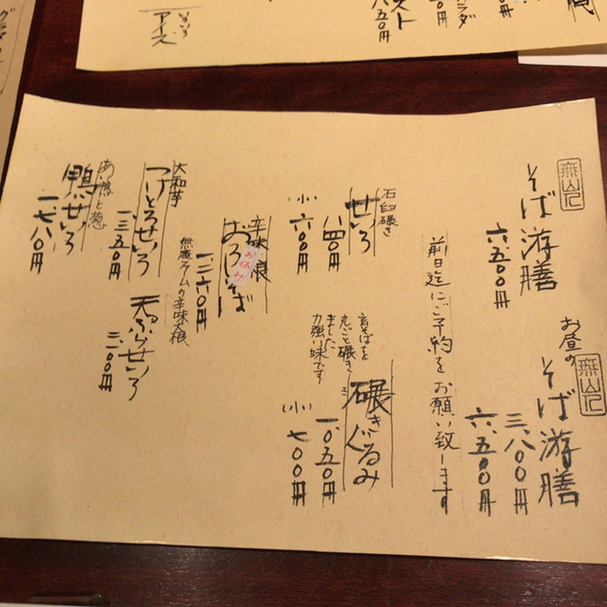 無山
そば游膳
六、五〇〇円
お昼の
無山
そば游膳
三、八〇〇円
六、五〇〇円
前日迄にご予約をお願い致します
石臼碾き
せいろ
八四〇円
(小)六〇〇円
玄そばを
丸ごと碾き
ました
力強い味です
碾きぐるみ
一、〇五〇円
(小)七〇〇円
辛味大根
おろしそば
おやすみ
一、二六〇円
無農ファームの辛味大根
大和芋
つけとろせいろ
一、三五〇円
天ぷらせいろ
あい鴨と葱
鴨せいろ
一、七八〇円
アイス